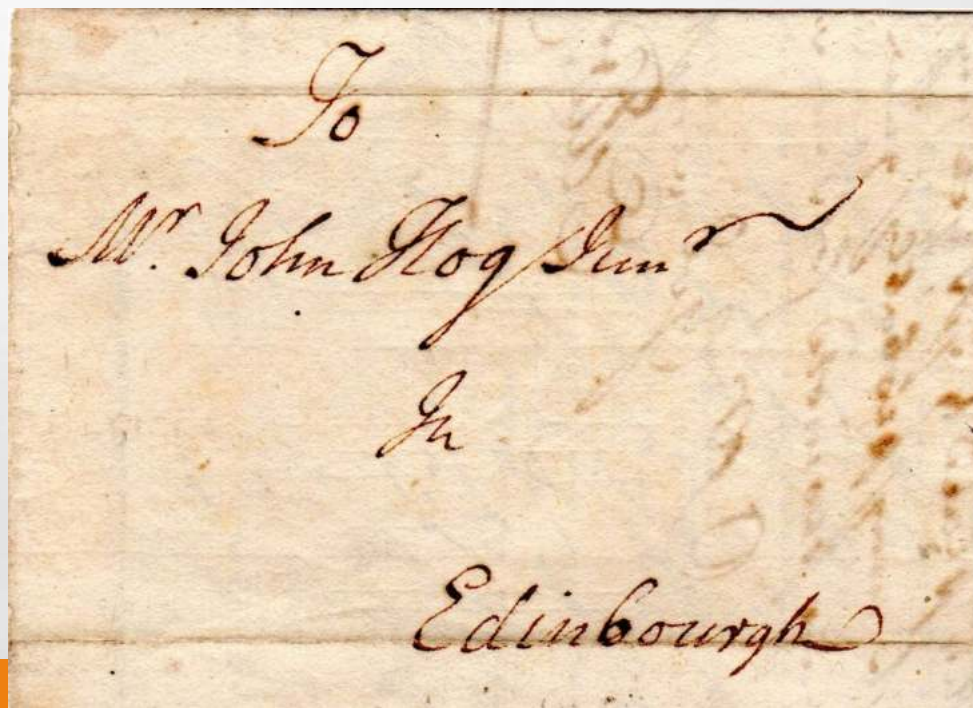 To
Mr. John Hog Junr
In
Edinbourgh